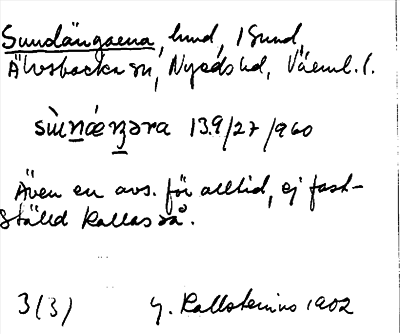 Sundängarna, hmd, 1 Sund,
Älvsbacka sn, Nyeds hd, Värml. l.
sùnǽŋəra 139/27/960
Även en avs. för alltid, ej fast-
ställd kallas så.
3(3) G. Kallstenius 1902